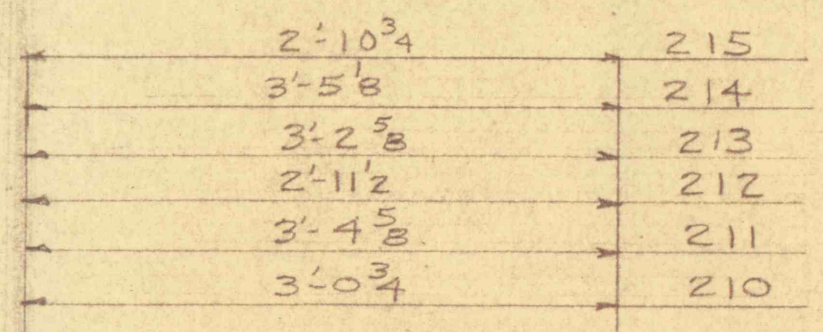 2'-10 3/4 215
3'-5 1/8 214
3'-2 5/8 213
2'-11 1/2 212
3'-4 5/8 211
3'-0 3/4 210